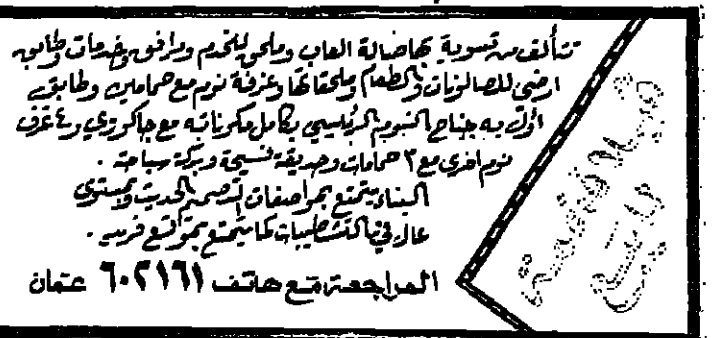 فيلا فخمة
للبيع
تتألف من تسوية بها صالة العاب وملحق للخدم ومرافق وخدمات وطابق
ارضي للصالونات والطعام وملحقاتها وغرفة نوم مع حمامين وطابق
اول به جناح النوم الرئيسي بكامل مكوناته مع جاكوزي و ٤ غرف
نوم اخرى مع ٣ حمامات وحديقة فسيحة وبركة سباحة .
البناء يتمتع بمواصفات التصميم الحديث وبمستوى
عال في التشطيبات كما يتمتع بموقع فريد .
المراجعة مع هاتف ٦٠٢١٦١ عمان